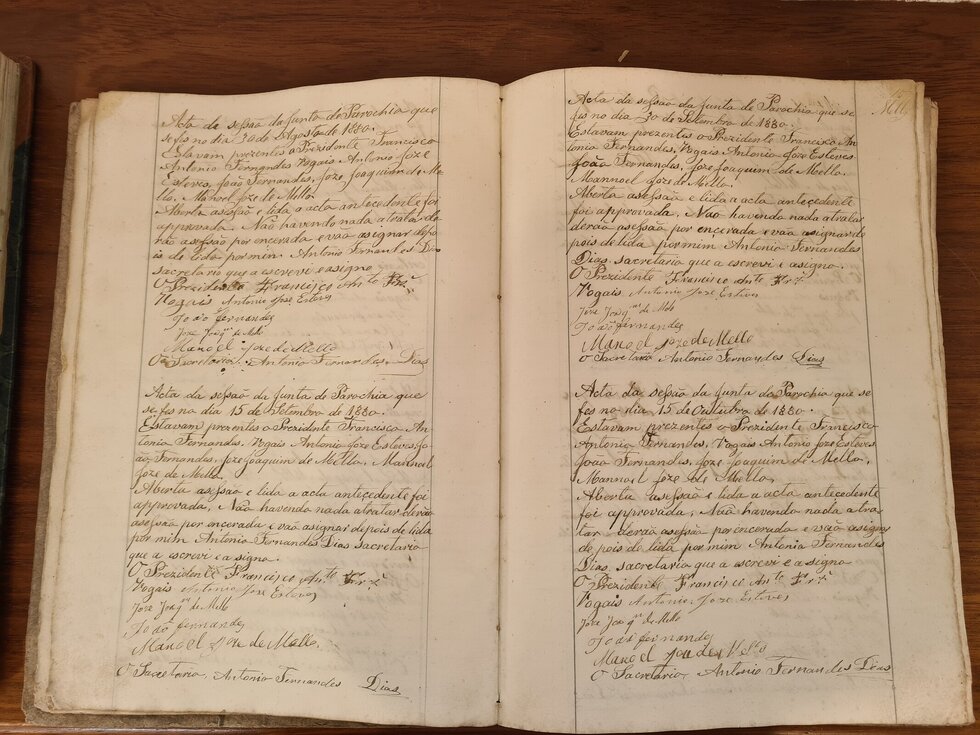 Acta da sessão da Junta de Parochia que
se fes no dia 30 de Agosto de 1880.
Estavam prezentes o Prezidente Francisco
Antonio Fernandes Vogais Antonio Joze
Esteves, João Fernandes, Joze Joaquim de Me-
llo, Manoel Joze de Mello.
Aberta asessão e lida a acta antecedente foi
approvada. Não havendo nada atratar de
rão asessão por encerada e vão asignar depo
is de lida por mim Antonio Fernandes Dias
sacretario que a escrevi e asigno.
O Prezidente Francisco Antº Frz
Vogais Antonio Joze Esteves
João fernandes
Joze Joaqm de Mello
Manoel Joze de Mello
O Sacretario, Antonio Fernandes, Dias
Acta da sessão da junta de Parochia que
se fes no dia 15 de Setembro de 1880.
Estavam prezentes o Prezidente Francisco An-
tonio Fernandes, Vogais Antonio Joze Esteves, Jo-
ão Fernandes, Joze Joaquim de Mello, Mannoel
Joze de Mello.
Aberta asessão e lida a acta antecedente foi
approvada, Não havendo nada atratar derão
asessão por encerada e vão asignar depois de lida
por mim Antonio Fernandes Dias sacretario
que a escrevi e a signo.
O Prezidente Francisco Antº Frz
Vogais Antonio Joze Esteves
Joze Joaqm de Mello
João fernandes
Manoel Joze de Mello.
O Sacretario, Antonio Fernandes Dias
Acta da sessão da Junta de Parochia que se
fes no dia 30 de Setembro de 1880.
Estavam prezentes o Prezidente Francisco An-
tonio Fernandes, Vogais Antonio Joze Esteves
João Fernandes, Joze Joaquim de Mello.
Mannoel Joze de Mello.
Aberta asessão e lida a acta antecedente
foi approvada. Não havendo nada atratar
derão asessão por encerada e vão asignar de
pois de lida por mim Antonio Fernandes
Dias, sacretario que a escrevi e asigno.
O Prezidente Francisco Antº Frz
Vogais Antonio Joze Esteves
Joze Joaqm de Mello
João fernandes
Manoel Joze de Mello
O Sacretario Antonio Fernandes Dias
Acta da sessão da junta de Parochia que se
fes no dia 15 de Outubro de 1880.
Estavam prezentes o Prezidente Francisco
Antonio Fernandes, Vogais Antonio Joze Esteves
João Fernandes, Joze Joaquim de Mello,
Mannoel Joze de Mello,
Aberta asessão e lida a acta antecedente
foi approvada, Não havendo nada a tra-
tar derão asessão por encerada e vão asignar
de pois de lida por mim Antonio Fernandes
Dias, sacretario que a escrevi e a signo
O Prezidente Francisco Antº Frz
Vogais Antonio Joze Esteves
Joze Joaqm de Mello
João fernandes
Manoel Joze de Mello
O Sacretario, Antonio Fernandes Dias